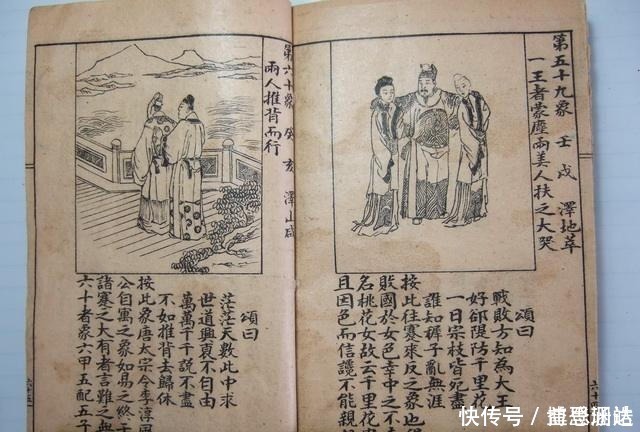 第五十九象 壬戌 澤地萃
一王者蒙塵兩美人扶之大哭
頌曰
戰敗方知為大王
好卻隄防千里花
一日宗枝皆殄盡
誰知褲子亂無涯
按此往蹇來反之象也
敗國於女色幸中之不
名桃花女故云千里花
且因色而信讒不能親
六十四
第六十象 癸亥 澤山咸
兩人推背而行
頌曰
茫茫天數此中求
世道興衰不自由
萬萬千千說不盡
不如推背去歸休
按此象唐太宗令李淳風
公自寓之象如易之終于
諸蹇之大有者言雖之無
六十者象六甲五配五子
六十五
快传号/